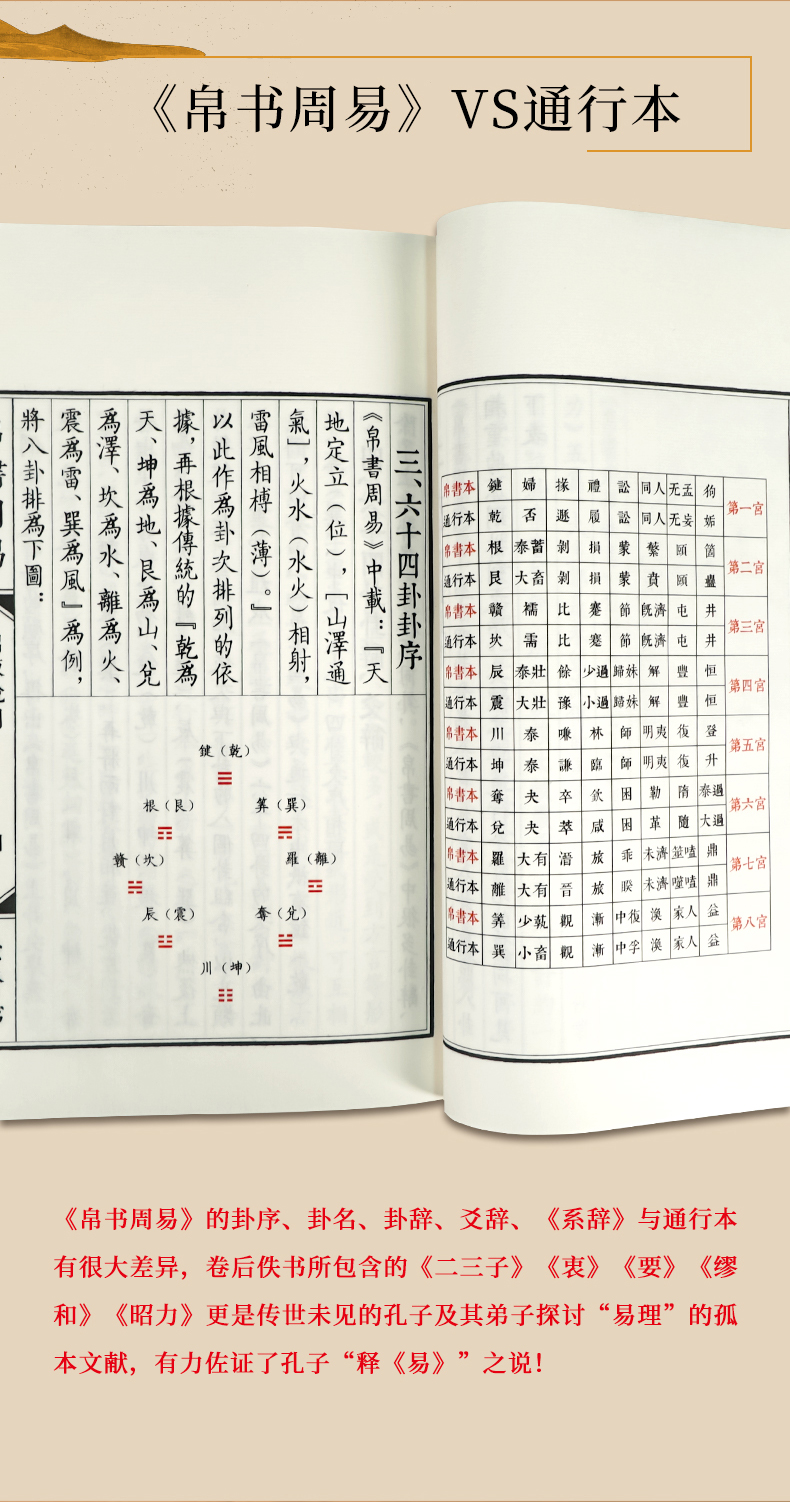 《帛书周易》VS通行本
三、六十四卦卦序
《帛書周易》中載：『天
地定立（位），［山澤通
氣］，火水（水火）相射，
雷風相榑（薄）。』
以此作爲卦次排列的依
據，再根據傳統的『乾爲
天、坤爲地、艮爲山、兌
爲澤、坎爲水、離爲火、
震爲雷、巽爲風』爲例，
將八卦排爲下圖：
鍵（乾）
根（艮） 筭（巽）
贛（坎） 羅（離）
辰（震） 奪（兌）
川（坤）
帛書本 鍵 婦 掾 禮 訟 同人 无孟 狗 第一宮
通行本 乾 否 遯 履 訟 同人 无妄 姤
帛書本 根 泰蓄 剝 損 蒙 蘩 頤 箇 第二宮
通行本 艮 大畜 剝 損 蒙 賁 頤 蠱
帛書本 贛 襦 比 蹇 節 旣濟 屯 井 第三宮
通行本 坎 需 比 蹇 節 旣濟 屯 井
帛書本 辰 泰壯 餘 少過 歸妹 解 豐 恒 第四宮
通行本 震 大壯 豫 小過 歸妹 解 豐 恒
帛書本 川 泰 嗛 林 師 明夷 復 登 第五宮
通行本 坤 泰 謙 臨 師 明夷 復 升
帛書本 奪 夬 卒 欽 困 勒 隋 泰過 第六宮
通行本 兌 夬 萃 咸 困 革 隨 大過
帛書本 羅 大有 溍 旅 乖 未濟 筮嗑 鼎 第七宮
通行本 離 大有 晉 旅 睽 未濟 噬嗑 鼎
帛書本 筭 少䓻 觀 漸 中復 渙 家人 益 第八宮
通行本 巽 小畜 觀 漸 中孚 渙 家人 益
《帛书周易》的卦序、卦名、卦辞、爻辞、《系辞》与通行本
有很大差异，卷后佚书所包含的《二三子》《衷》《要》《缪
和》《昭力》更是传世未见的孔子及其弟子探讨“易理”的孤
本文献，有力佐证了孔子“释《易》”之说！